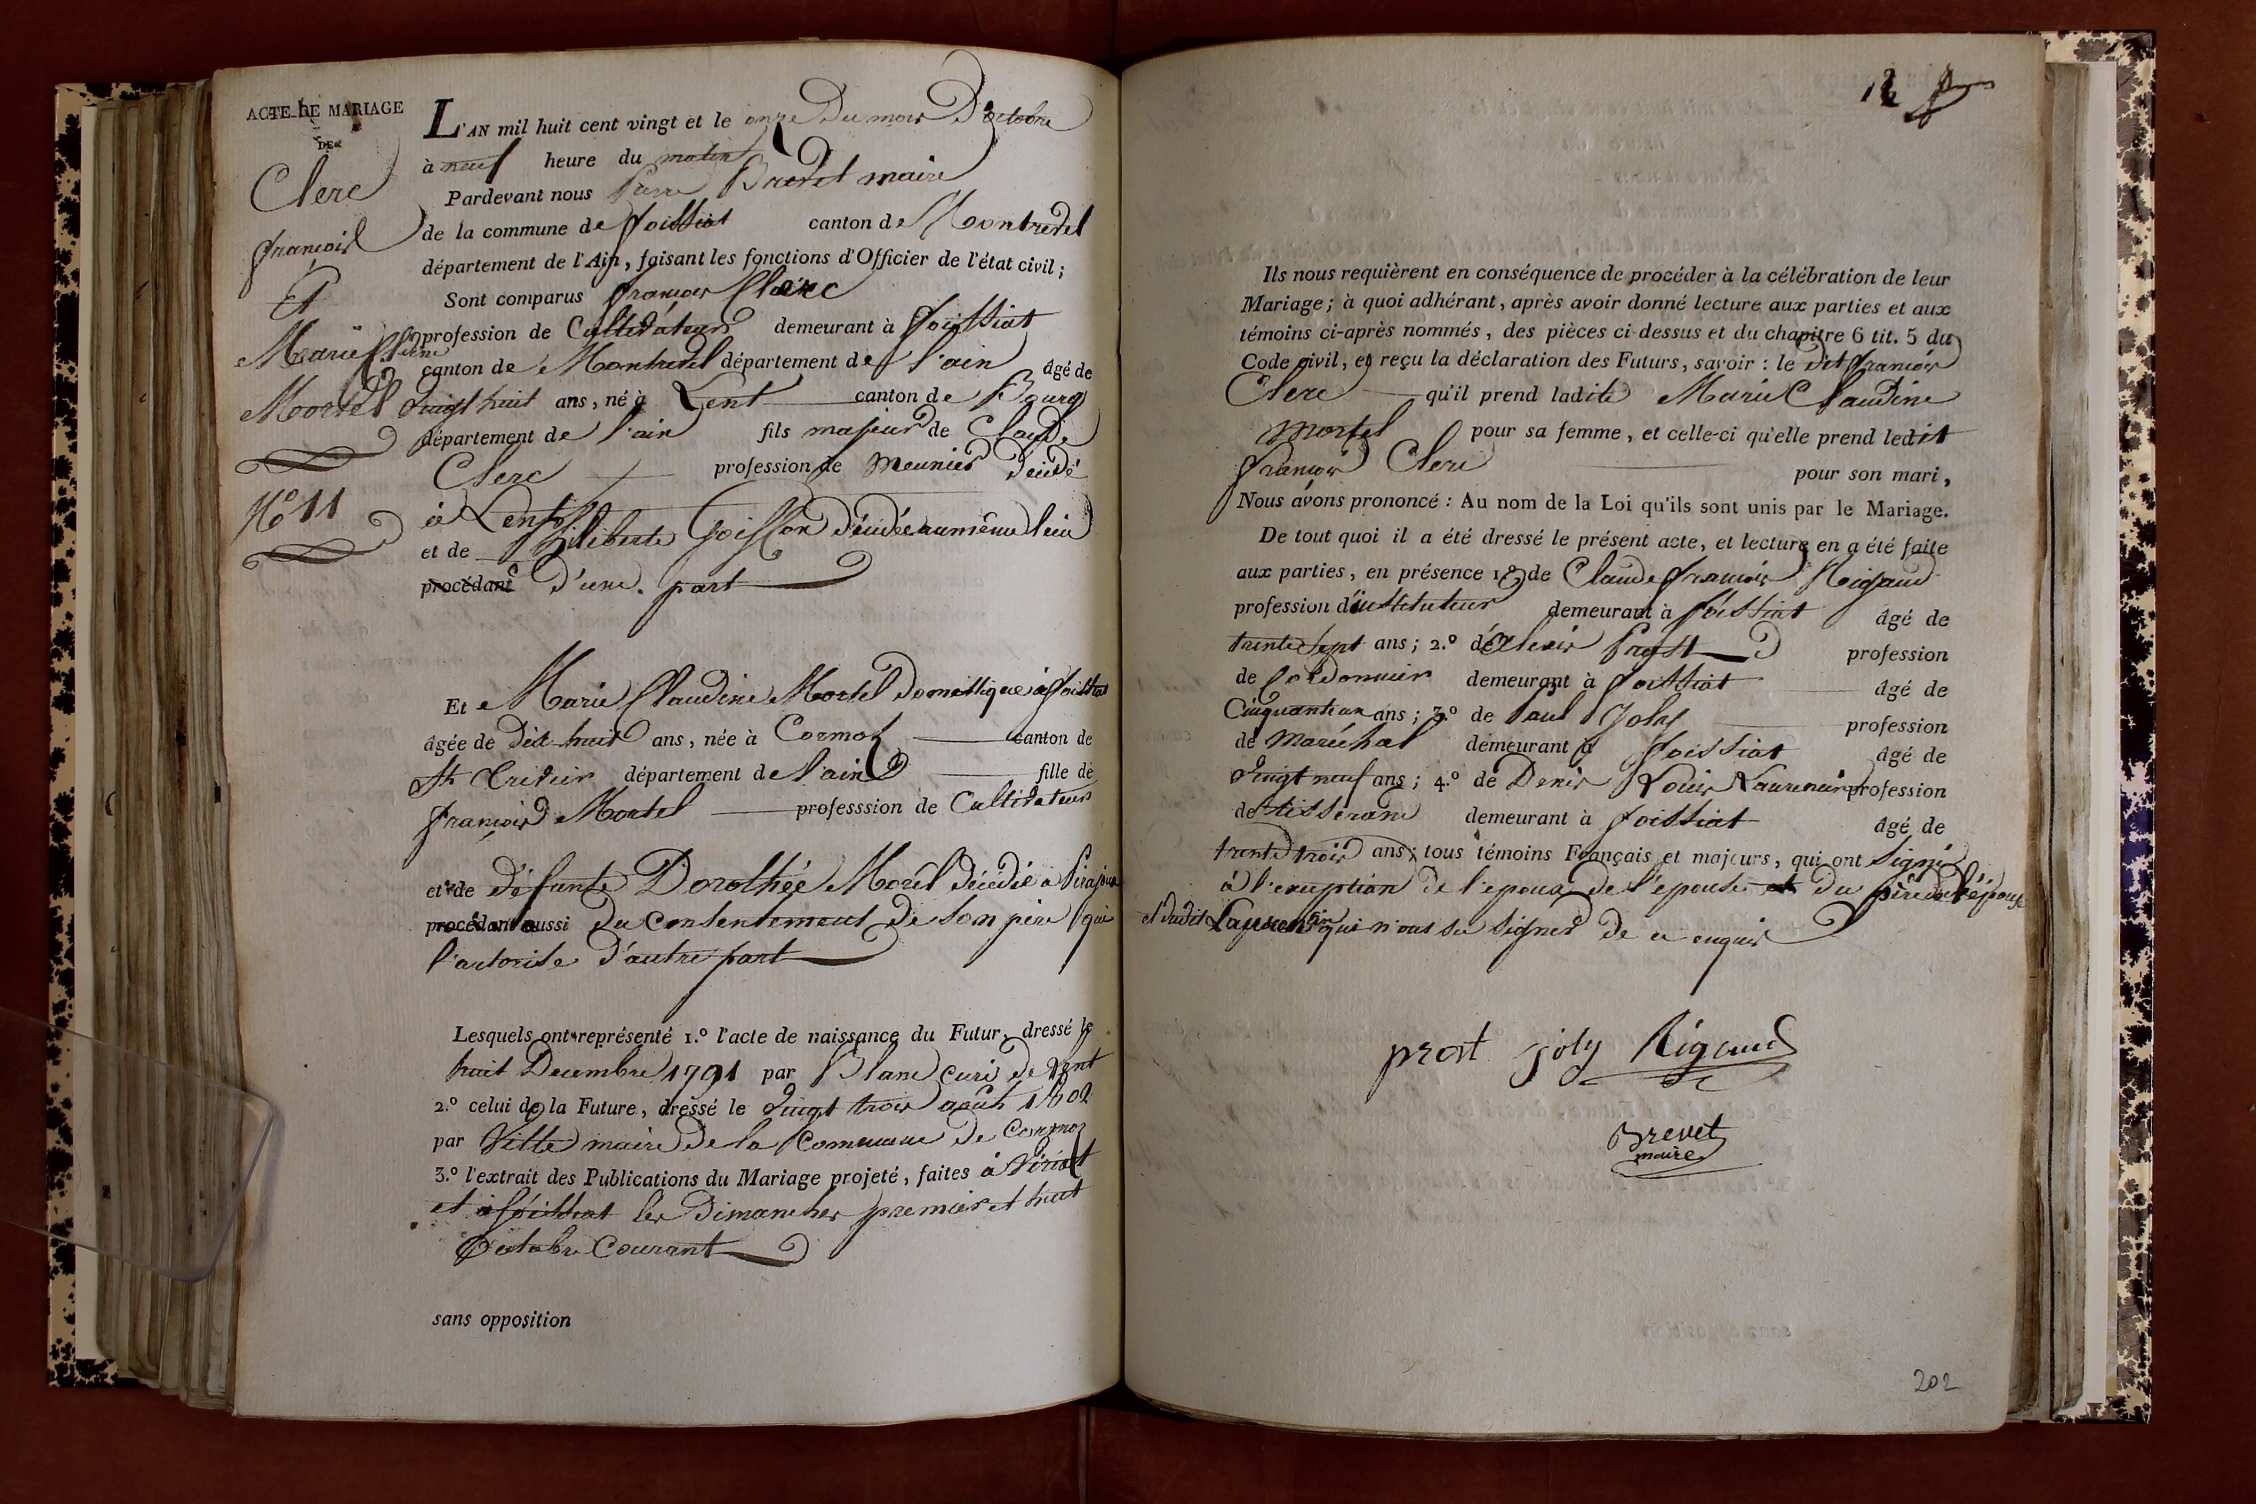 ACTE DE MARIAGE
DE
Clerc
françois
Et
Marie Cl.dine
Mortel
N.o 11
L'AN mil huit cent vingt et le onze du mois D'octobre
à neuf heure du matin
Pardevant nous Pierre Brevet maire
de la commune de foissiat canton de Montrevel
département de l'Ain, faisant les fonctions d'Officier de l'état civil;
Sont comparus françois Clerc
profession de Cultivateur demeurant à foissiat
canton de Montrevel département de l'ain âgé de
vingt huit ans, né à Lent canton de Bourg
département de l'ain fils majeur de Claude
Clerc profession de meunier décédé
à Lent
et de Philiberte Goisson décédée au même lieu
procédant d'une part
Et Marie Claudine Mortel domestique à foissiat
âgée de dix huit ans, née à Cormoz canton de
St trivier département de l'ain fille de
françois Mortel professsion de Cultivateur
et de défunte Dorothée Morel décédée a Pirajoux
procédant aussi du consentement de son père qui
l'autorise d'autre part
Lesquels ont représenté 1.º l'acte de naissance du Futur, dressé le
huit Decembre 1791 par Blanc curé de Lent
2.º celui de la Future, dressé le vingt trois août 1802
par Ville maire de la Commune de Cormoz
3.º l'extrait des Publications du Mariage projeté, faites à Viriat
et à foissiat les Dimanches premier et huit
Octobre Courant
sans opposition
12
Ils nous requièrent en conséquence de procéder à la célébration de leur
Mariage; à quoi adhérant, après avoir donné lecture aux parties et aux
témoins ci-après nommés, des pièces ci-dessus et du chapitre 6 tit. 5 du
Code civil, et reçu la déclaration des Futurs, savoir: le dit françois
Clerc qu'il prend ladite Marie Claudine
mortel pour sa femme, et celle-ci qu'elle prend ledit
françois Clerc pour son mari,
Nous avons prononcé: Au nom de la Loi qu'ils sont unis par le Mariage.
De tout quoi il a été dressé le présent acte, et lecture en a été faite
aux parties, en présence 1.º de Claude françois Rigaud
profession d'instituteur demeurant à foissiat âgé de
trente sept ans; 2.º de alexis Prost profession
de Cordonnier demeurant à foissiat âgé de
Cinquante un ans; 3.º de Paul Joly profession
de Maréchal demeurant à foissiat âgé de
vingt neuf ans; 4.º de Denis Louis Laurencin profession
de tisserand demeurant à foissiat âgé de
trente trois ans; tous témoins Français et majeurs, qui ont signé
à l'exception de l'epoux de l'epouse et du père de l'épouse
et dudit Laurencin qui n'ont su signer de ce enquis
prost joly Rigaud
Brevet
maire
202